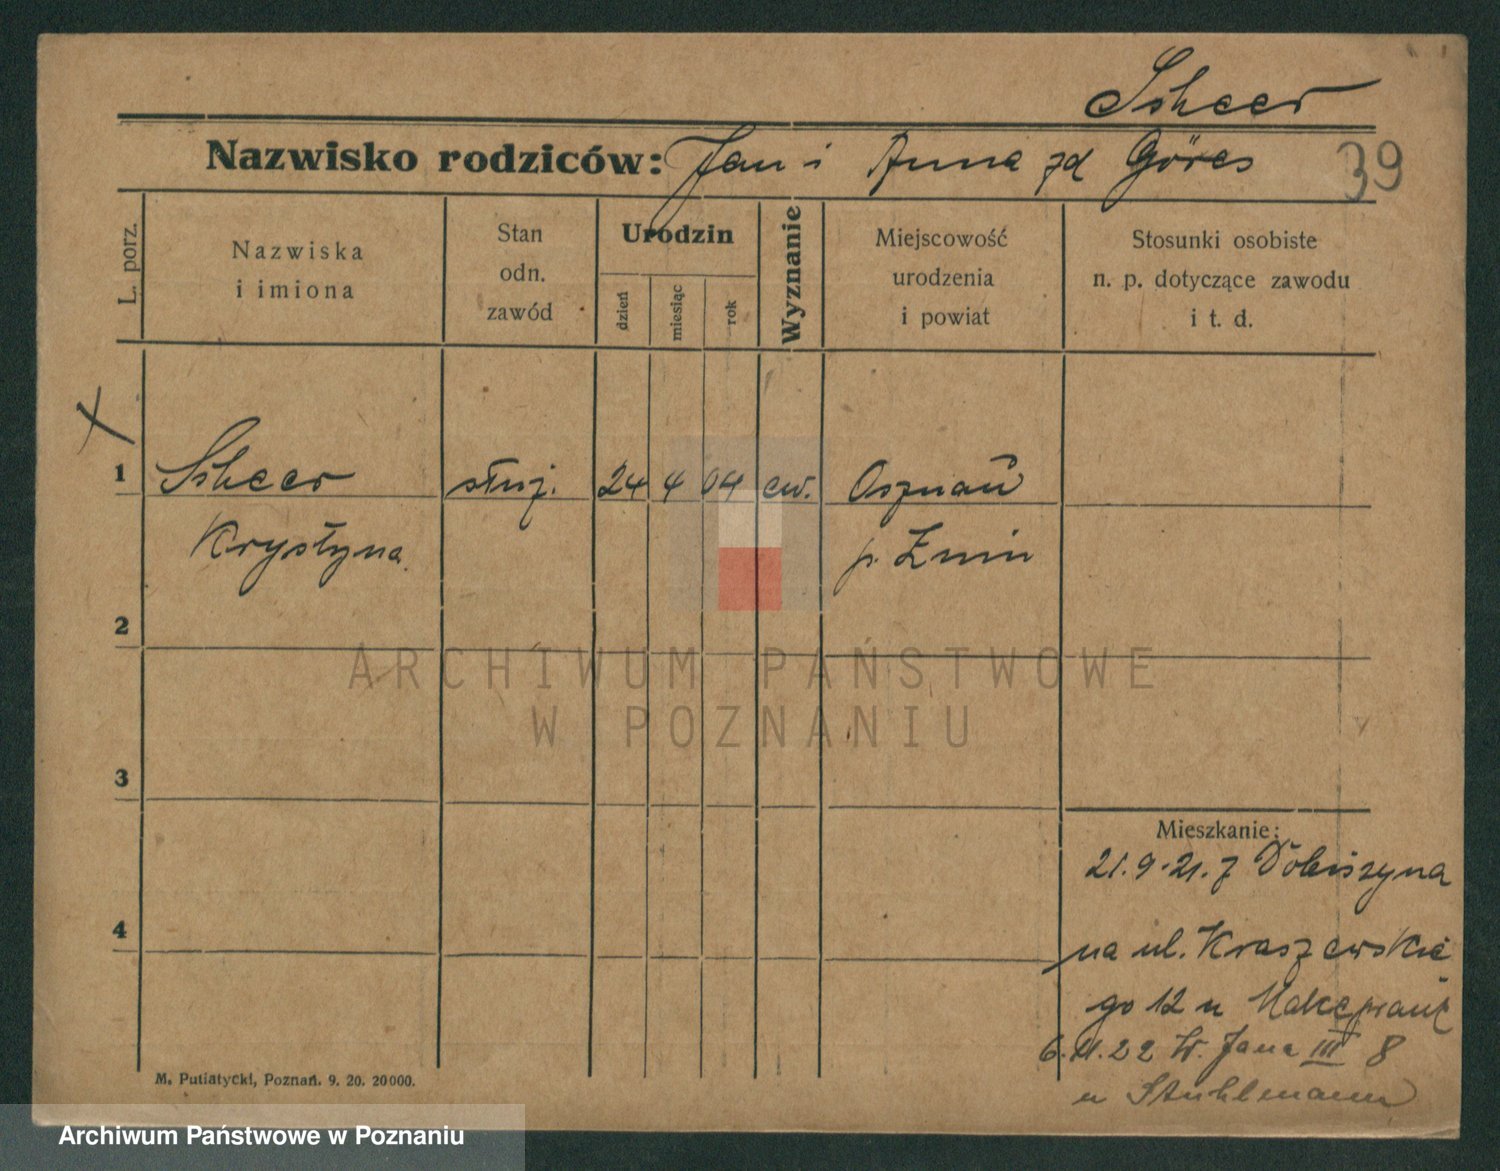 Scheer
Nazwisko rodziców: Jan i Anna zd Göres
39
L. porz.
Nazwiska
i imiona
Stan
odn.
zawód
Urodzin
dzień
miesiąc
rok
Wyznanie
Miejscowość
urodzenia
i powiat
Stosunki osobiste
n. p. dotyczące zawodu
i t. d.
1 Scheer służ. 24 4 04 ew.
Krystyna
p. Żnin
2
ARCHIWUM PAŃSTWOWE
W POZNANIU
3
Mieszkanie:
21.9.21. z
4
na ul. Kraszewskie
go 12 u
6.11.22 W. Jana III 8
u Stuhlmann
M. Putiatycki, Poznań. 9. 20. 20000.
Archiwum Państwowe w Poznaniu